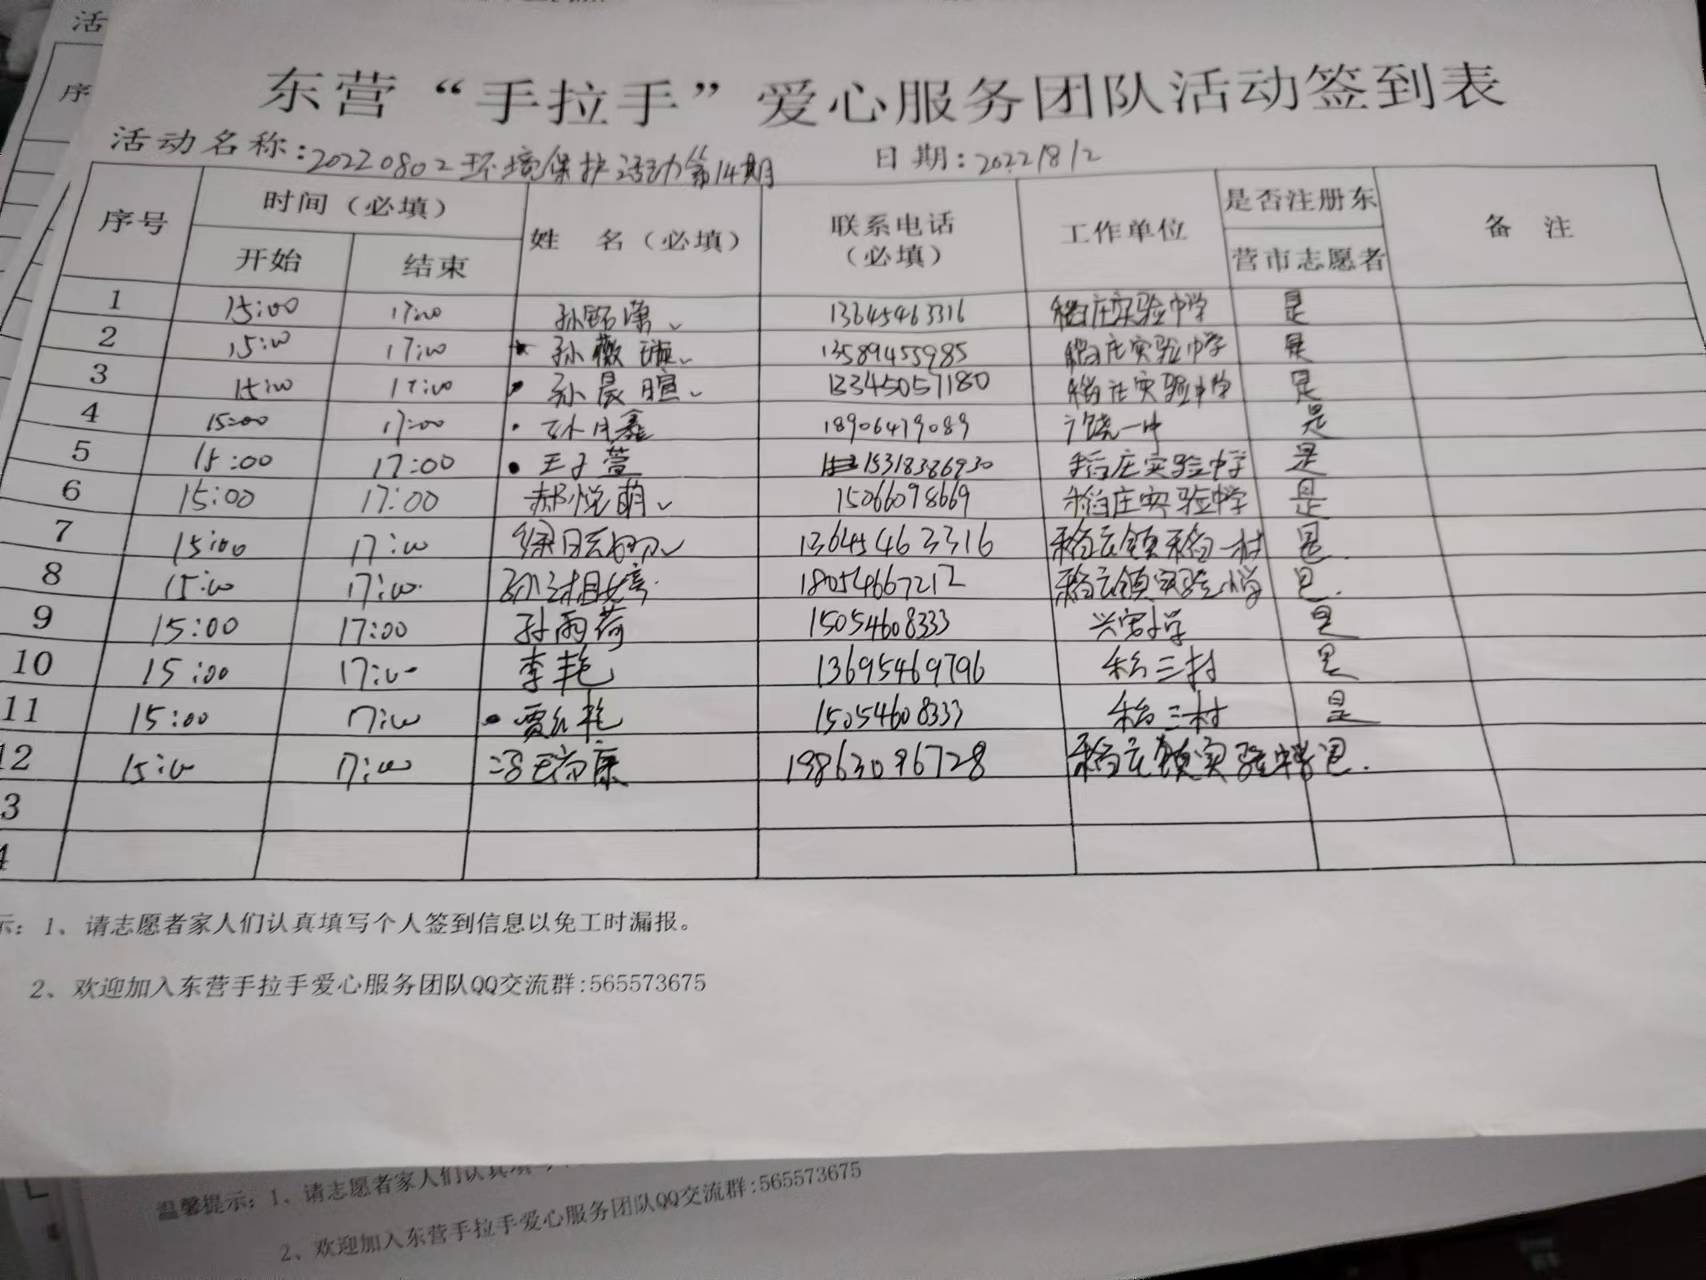 活
序
东营“手拉手”爱心服务团队活动签到表
活动名称:20220802环境保护活动第14期 日期:2022/8/2
序号 时间（必填） 姓 名（必填） 联系电话（必填） 工作单位 是否注册东营市志愿者 备 注
开始 结束
1 15:00 17:00 孙铭潇 13645463316 稻庄实验中学 是
2 15:00 17:00 孙薇璇 13589455985 稻庄实验中学 是
3 15:00 17:00 孙晨暄 稻庄实验中学 是
4 15:00 17:00 孙月鑫 18906479089 广饶一中 是
5 15:00 17:00 王子萱 15318386930 稻庄实验中学 是
6 15:00 17:00 郝悦萌 15066098669 稻庄实验中学 是
7 15:00 17:00 13645463316 稻庄镇稻一村 是
8 15:00 17:00 孙 18054667212 稻庄镇实验小学 是
9 15:00 17:00 孙雨荷 15054608333 小学 是
10 15:00 17:00 李艳 13695469796 稻三村 是
11 15:00 17:00 贾红艳 15054608333 稻三村 是
12 15:00 17:00 康 19863096728 稻庄镇实验中学 是
3
4
示: 1、请志愿者家人们认真填写个人签到信息以免工时漏报。
2、欢迎加入东营手拉手爱心服务团队QQ交流群:565573675
温馨提示: 1、请志愿者家人们认真填写
2、欢迎加入东营手拉手爱心服务团队QQ交流群:565573675